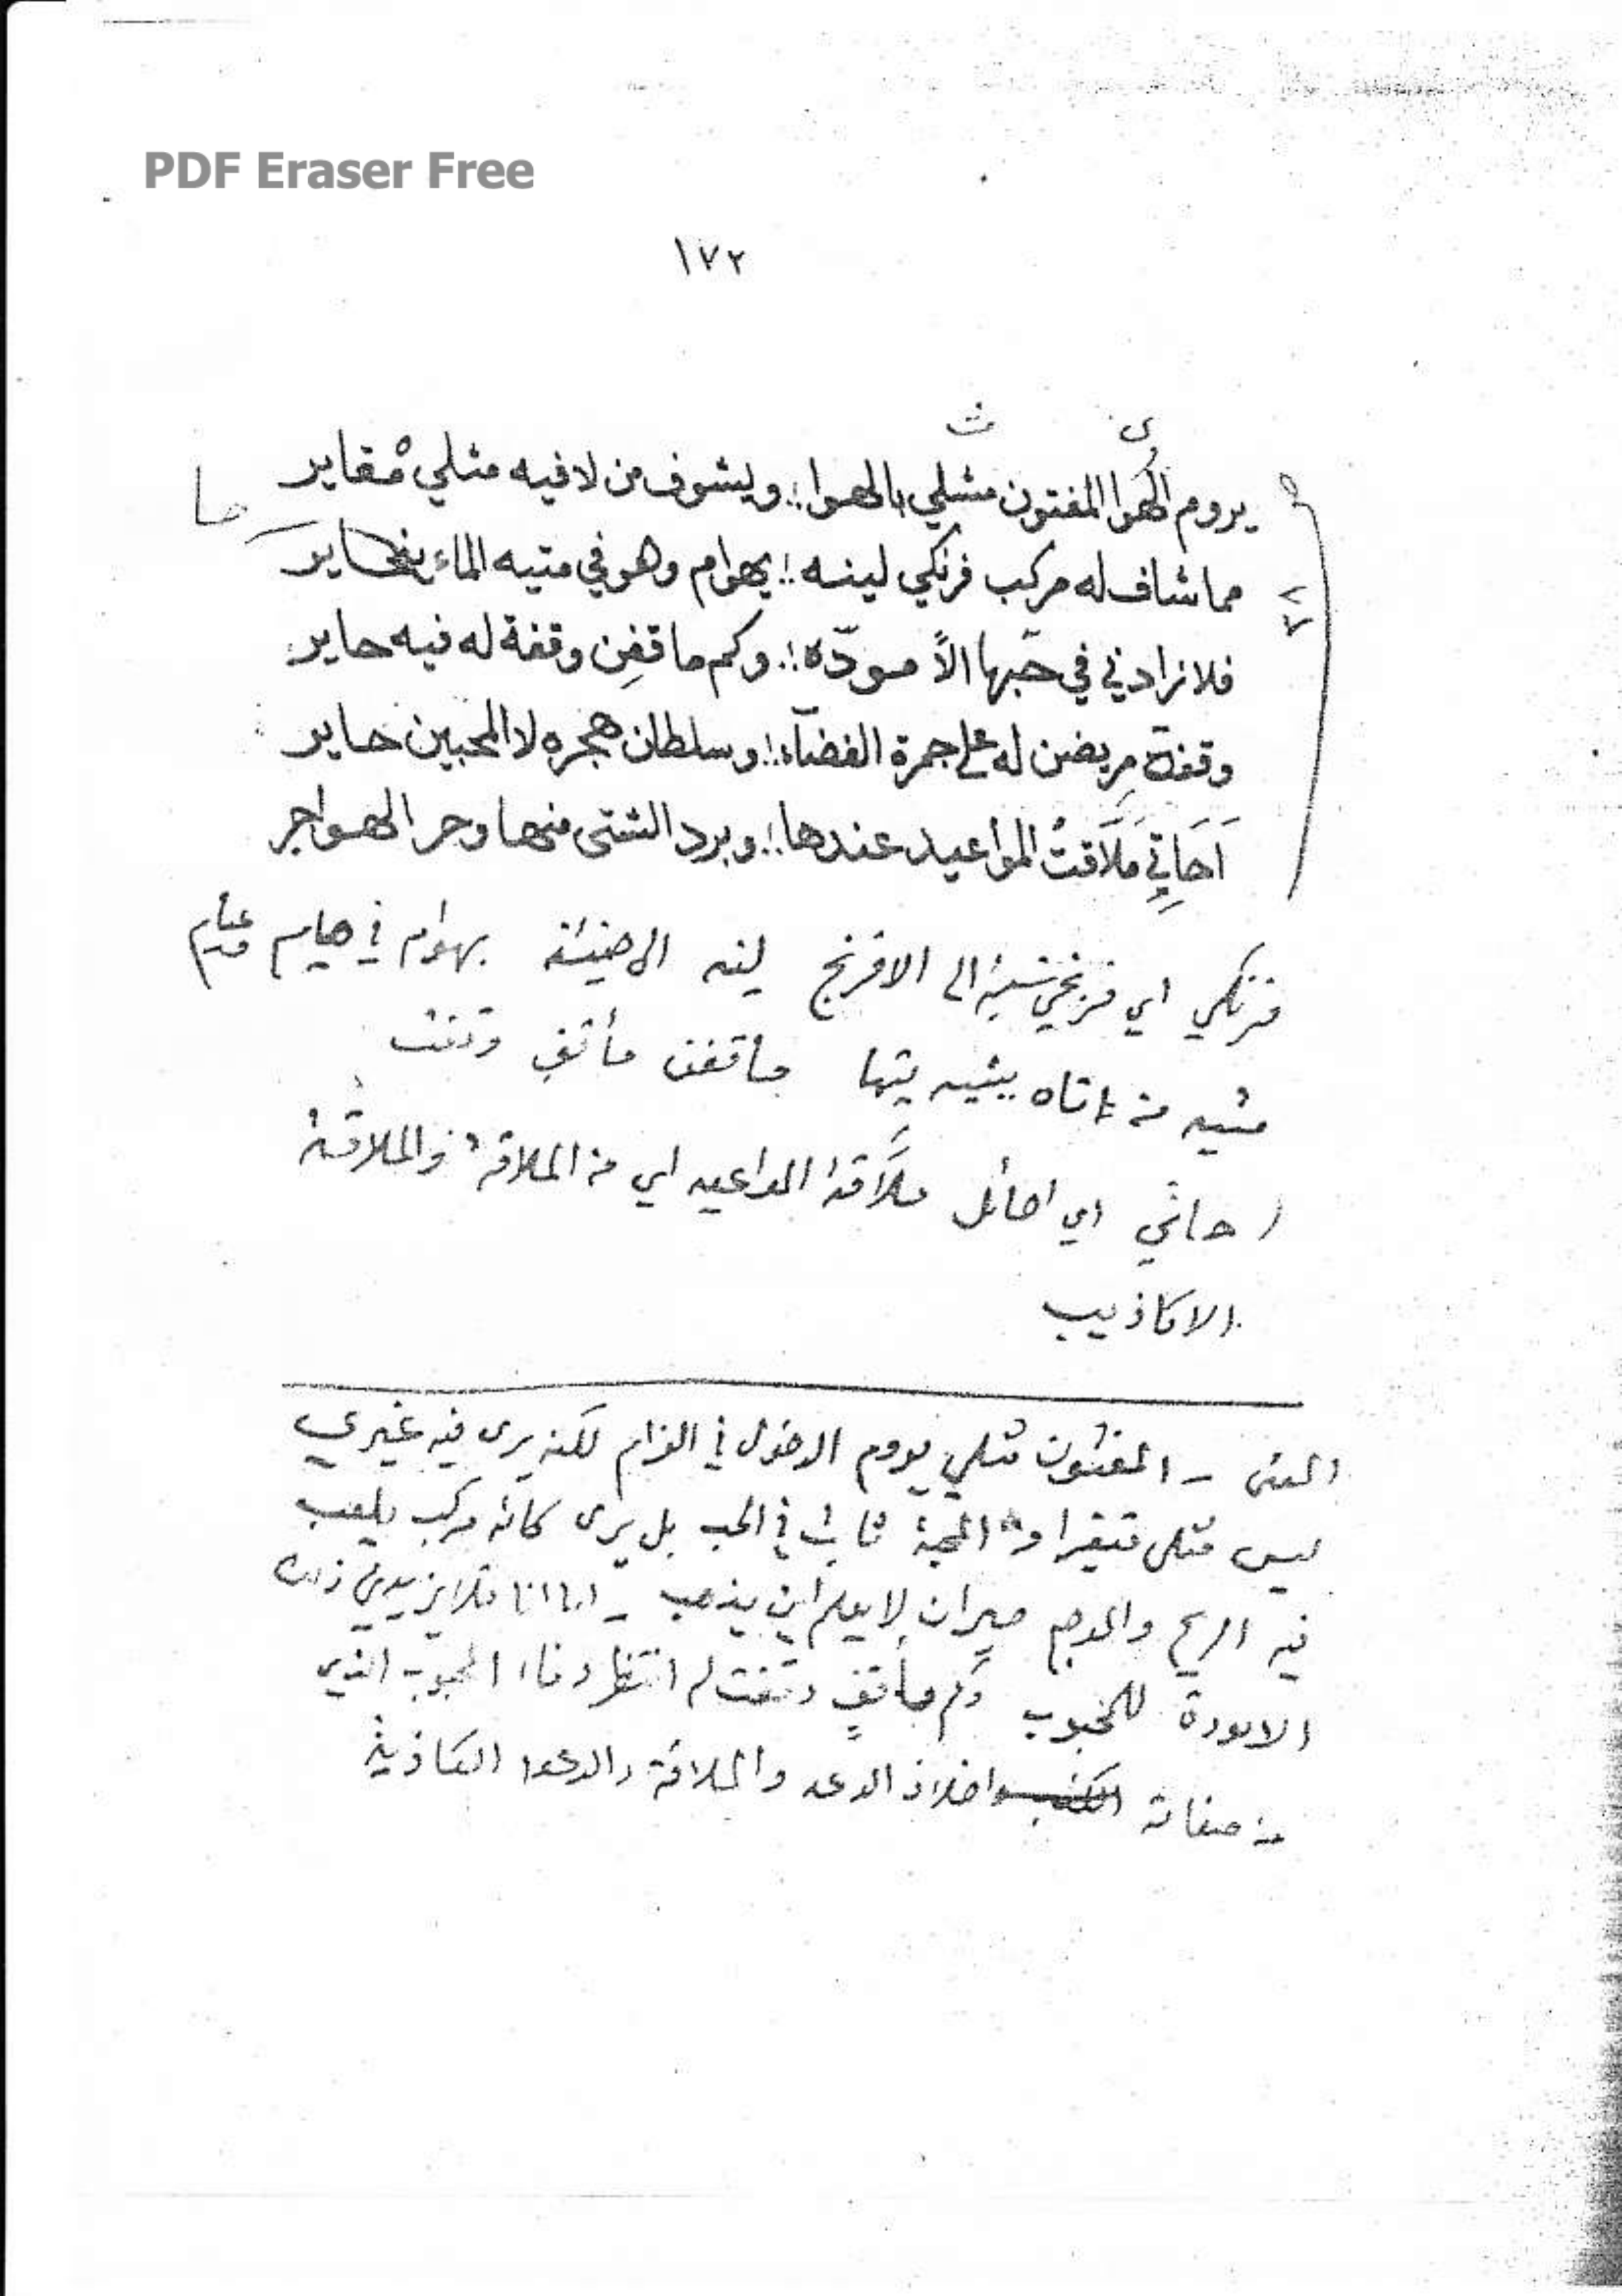 PDF Eraser Free
١٧٢
ى ث
يروم الهوا المفتون مثلي بالهوا :: ويشوف من لا فيه مثلي مْقاير
مما شاف له مركب فرنكي لينه :: يهوام وهو في متيه الماء حاير
حا
فلا زادني في حبّها الاً مودّه :: وكم ما قفِن وقفة له فيه حاير
وقفة مريضن له على جمرة الغضاء :: وسلطان هجره لا المحبين حاير
اَحَاتِي مَلاَقتْ المواعيد عندها :: وبرد الشتى منها وحر الهواجر
فرنكي اي فرنجي نسبة الى الافرنج لينه بهوام في هيام
متيه من اتاه يتيه يتيها ماقفن مأقف وقفت
احاتي اي اسائل ملاَقة المواعيد اي من الملاقة والملاقة
الاكاذيب
المعنى - المفتون مثلي يروم الدخول في الغرام لكنه يرى فيه غيري
ليس مثلي المحبة ثابت في الحب بل يرى كانه مركب يلعب
فيه الريح والموج حيران لا يعلم اين يذهب - اما انا فلا يزيدني ذلك
الا مودة للمحبوب وكم مأقفٍ وقفت له انتظر وفاء المحبوب الذي
من صفاته اخلاف الوعد والملاقة والدعوا الكاذبة